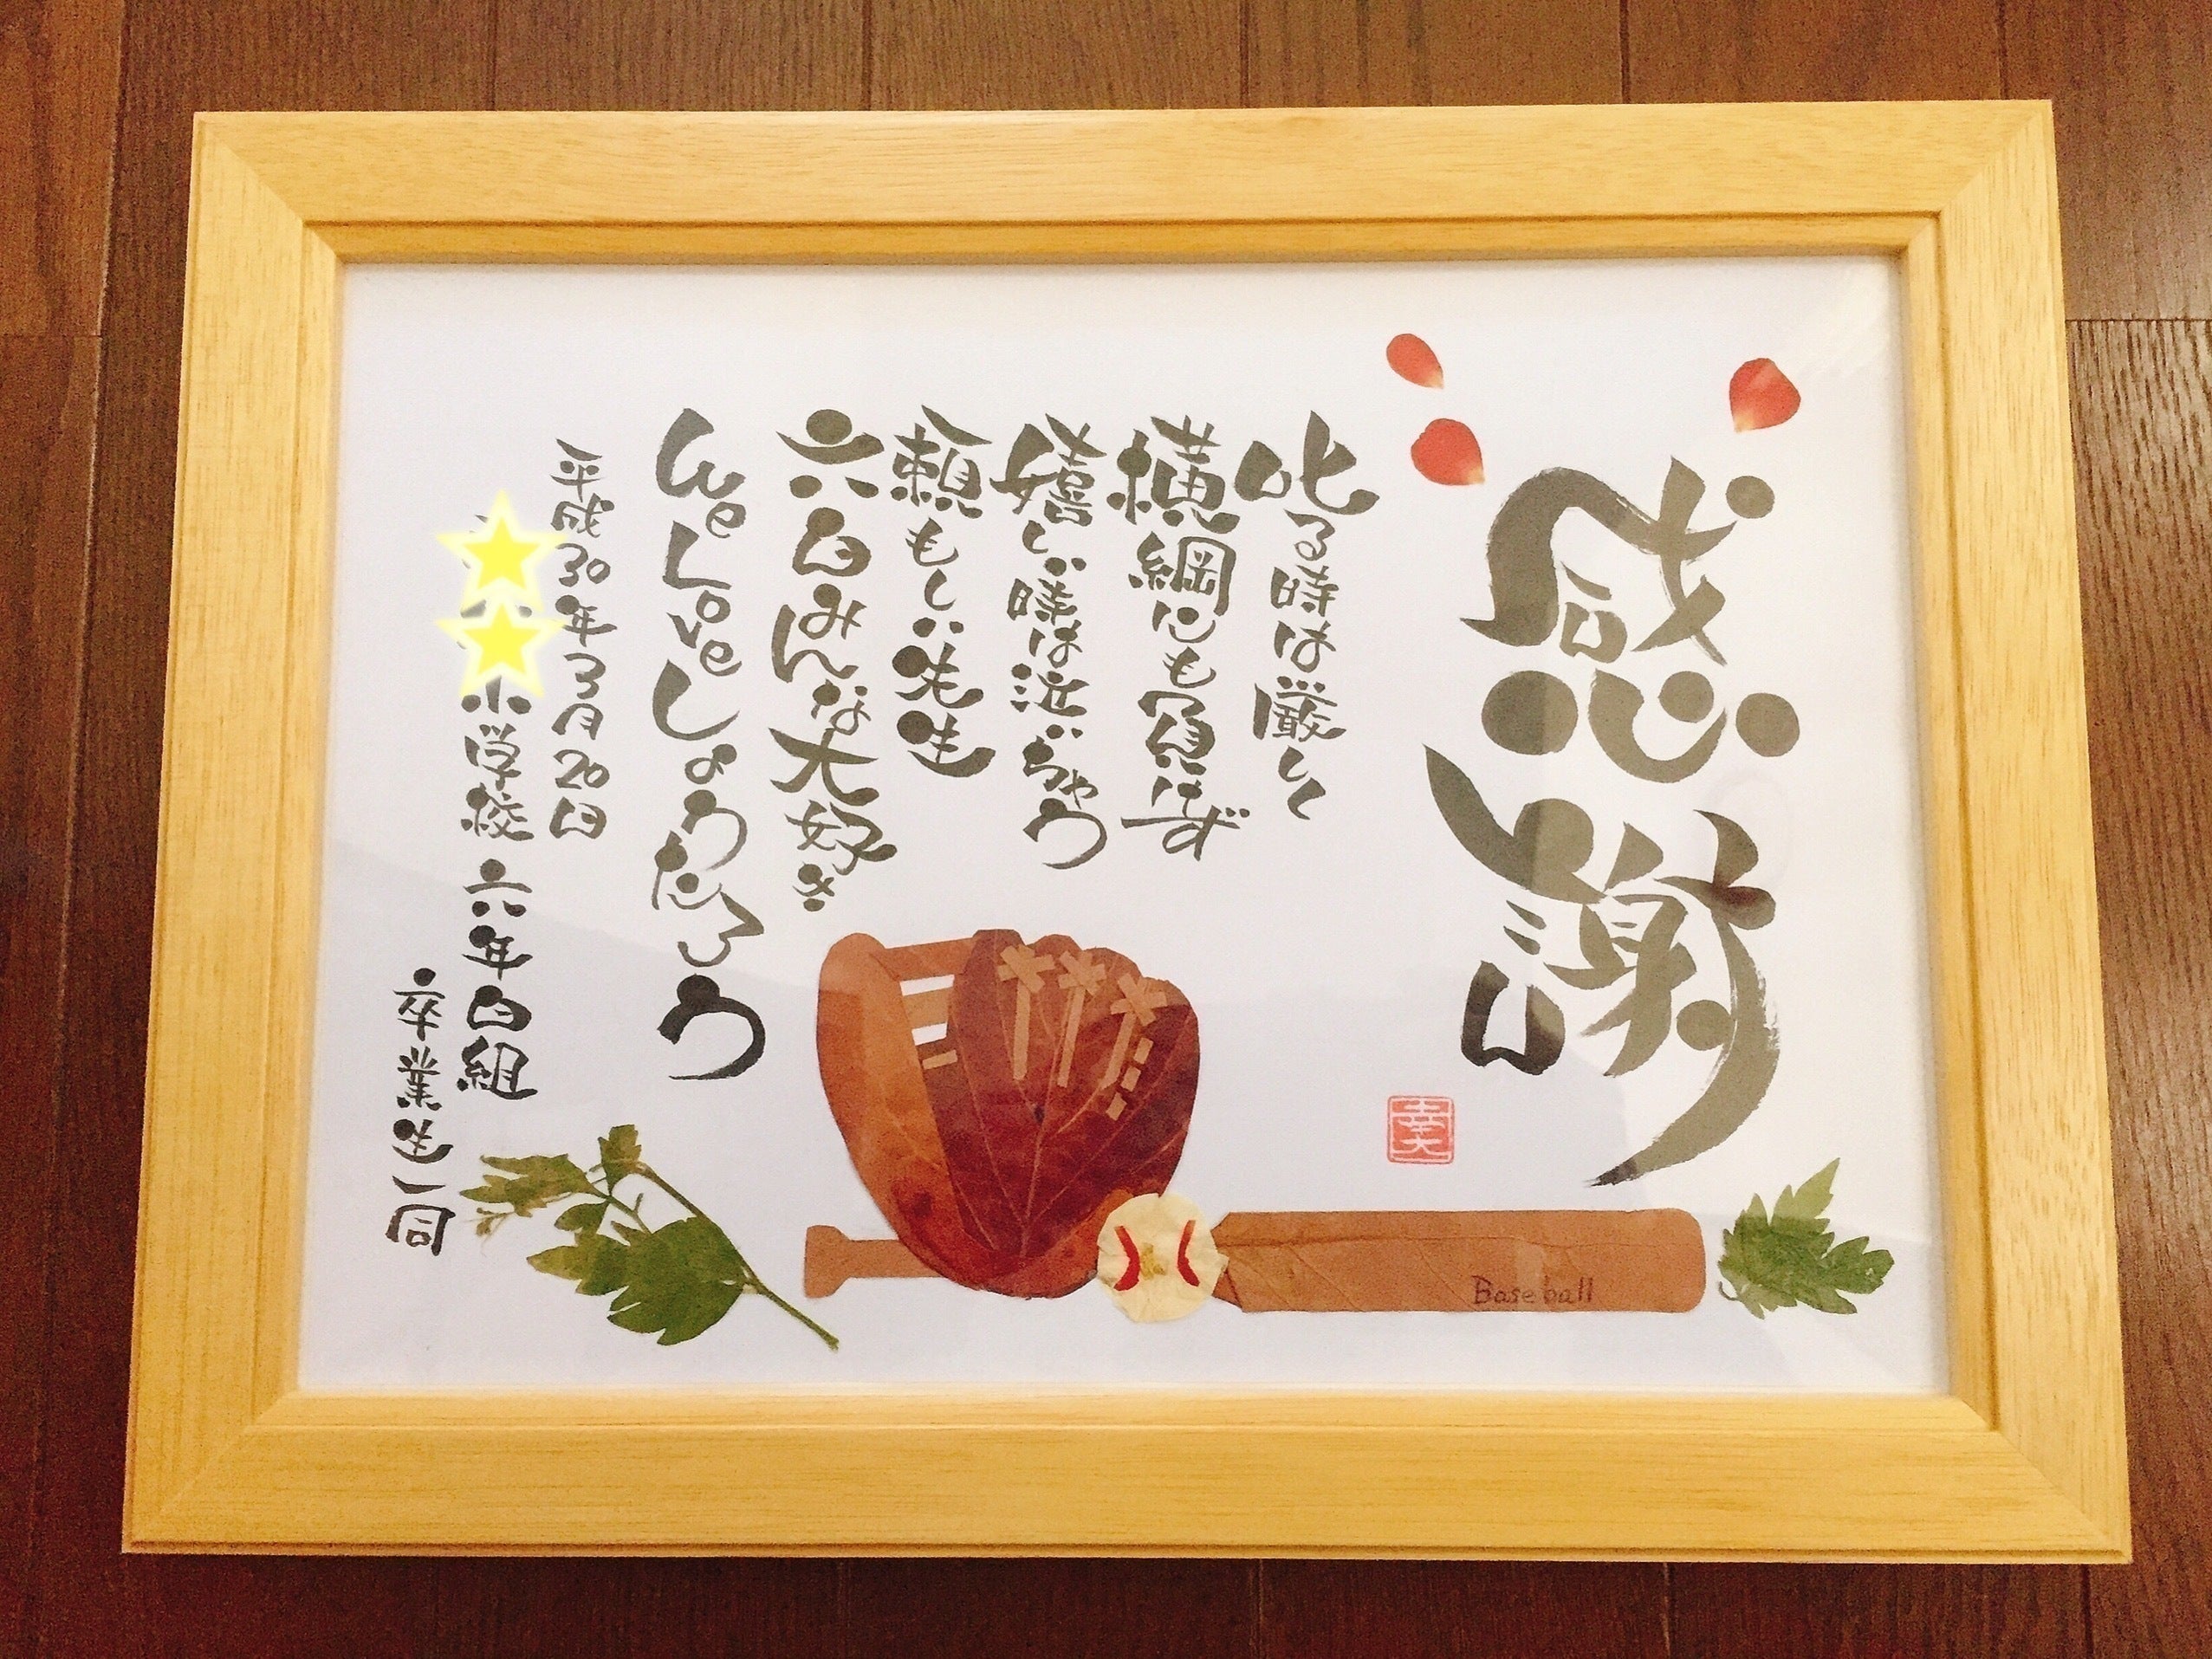 感謝
叱る時は厳しく
横綱にも負けず
嬉しい時は泣いちゃう
頼もしい先生
六白みんな大好き
We Love しょうたろう
平成30年3月20日
小学校 六年白組
卒業生一同
幸大
Baseball